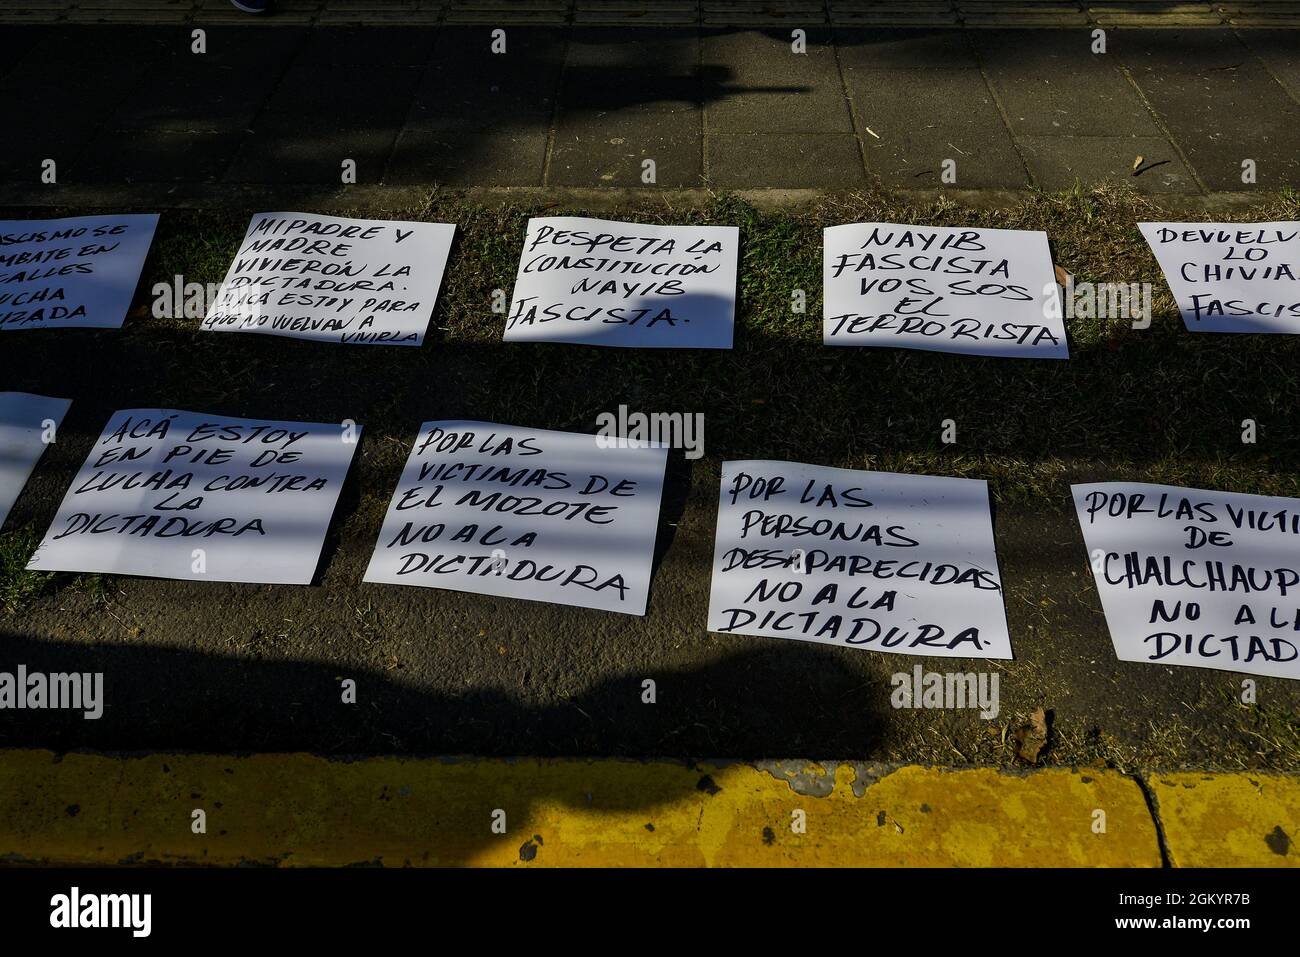 ASCISMO SE
MBATE EN
CALLES
LUCHA
IZADA
MI PADRE Y
MADRE
VIVIERÓN LA
DICTADURA.
ACÁ ESTOY PARA
QUE NO VUELVAN A
VIVIRLA
RESPETA LA
CONSTITUCIÓN
NAYIB
FASCISTA.
NAYIB
FASCISTA
VOS SOS
EL
TERRORISTA
DEVUELV
LO
CHIVIA
FASCIS
ACÁ ESTOY
EN PIE DE
LUCHA CONTRA
LA
DICTADURA
POR LAS
VICTIMAS DE
EL MOZOTE
NO A LA
DICTADURA
POR LAS
PERSONAS
DESAPARECIDAS
NO A LA
DICTADURA.
POR LAS VICTI
DE
CHALCHAUP
NO A LA
DICTAD
alamy
Image ID: 2GKYR7B
www.alamy.com